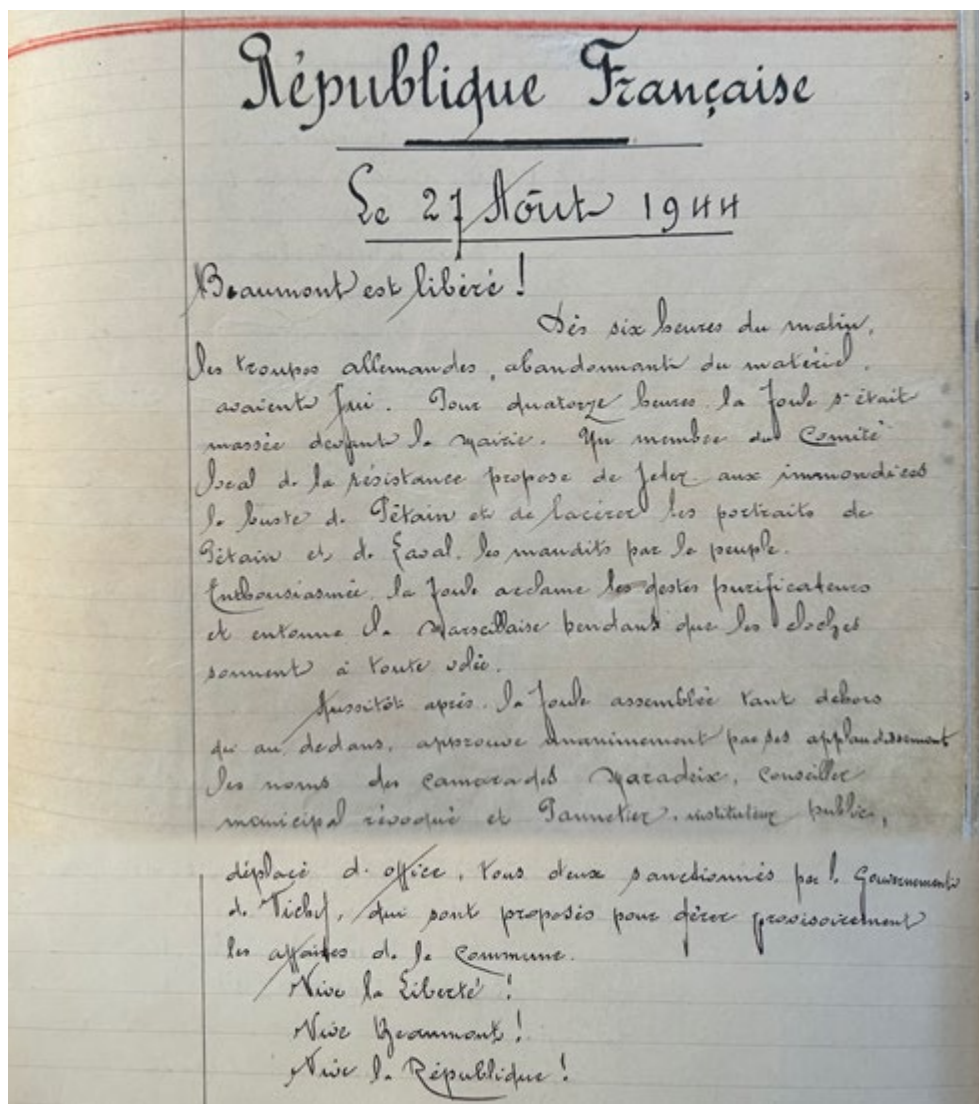 République Française
Le 27 Août 1944
Beaumont est libéré !
Dès six heures du matin,
les troupes allemandes, abandonnant du matériel,
avaient fui. Pour quatorze heures, la foule s'était
massée devant la mairie. Un membre du Comité
local de la résistance propose de jeter aux immondices
le buste de Pétain et de lacérer les portraits de
Pétain et de Laval, les maudits par le peuple.
Enthousiasmée, la foule acclame les gestes purificateurs
et entonne la Marseillaise pendant que les cloches
sonnent à toute volée.
Aussitôt après, la foule assemblée tant dehors
qu'au dedans, approuve unanimement par ses applaudissement
les noms des camarades Maradeix, Conseiller
municipal révoqué et Pannetier, instituteur public,
déplacé d'office, tous deux sanctionnés par le Gouvernement
de Vichy, qui sont proposés pour gérer provisoirement
les affaires de la Commune.
Vive la Liberté !
Vive Beaumont !
Vive la République !